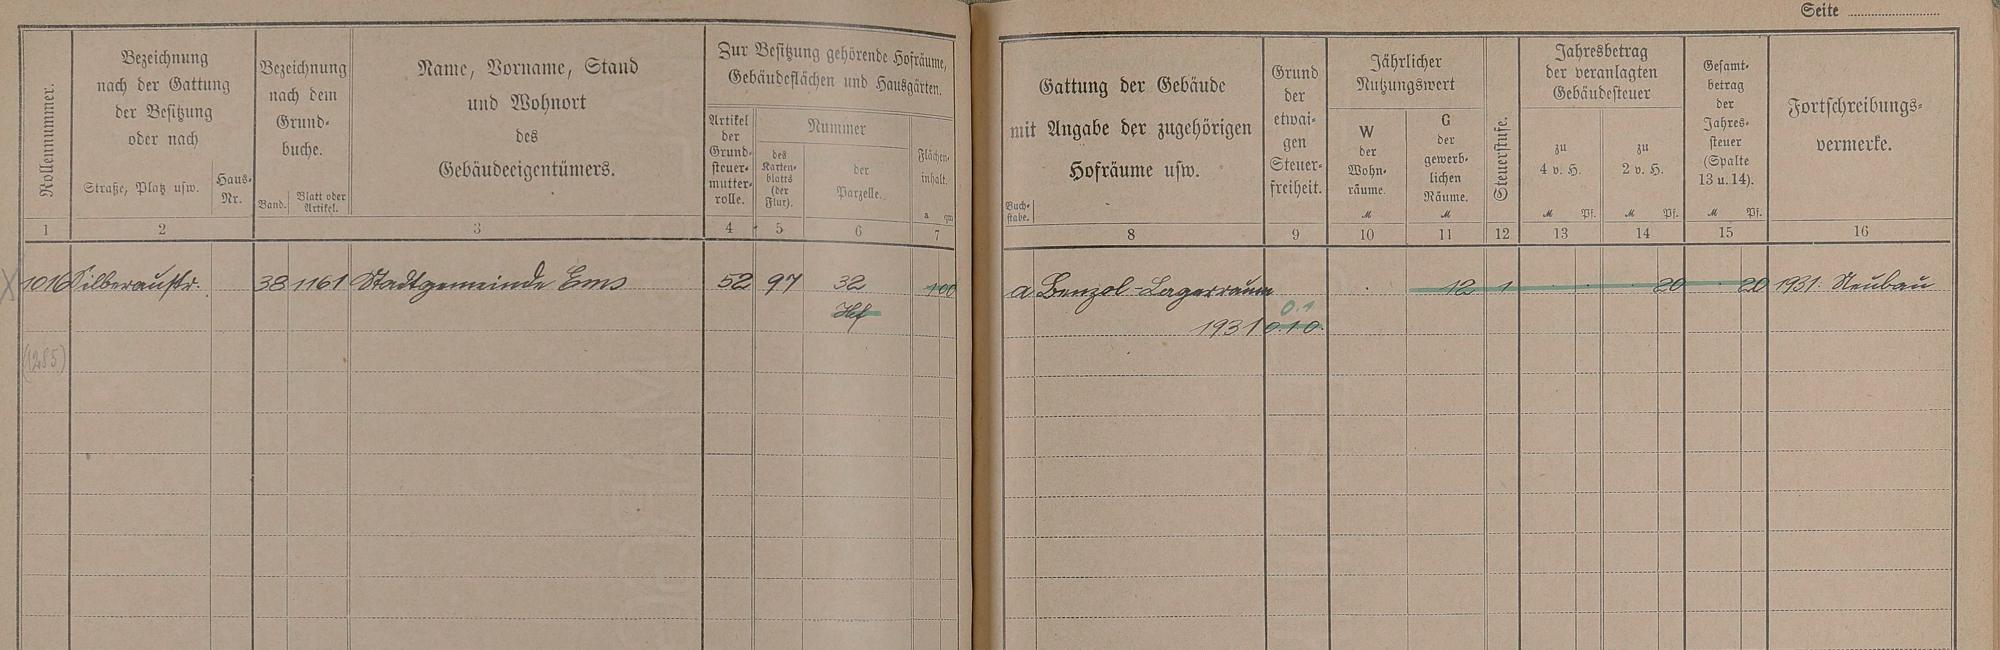 Seite
Rollennummer.
Bezeichnung
nach der Gattung
der Besitzung
oder nach
Straße, Platz usw.
Haus-
Nr.
Bezeichnung
nach dem
Grund-
buche.
Band.
Blatt oder
Artikel.
Name, Vorname, Stand
und Wohnort
des
Gebäudeeigentümers.
Zur Besitzung gehörende Hofräume,
Gebäudeflächen und Hausgärten.
Artikel
der
Grund-
steuer-
mutter-
rolle.
Nummer
des
Karten-
blatts
(der
Flur).
der
Parzelle.
Flächen-
inhalt.
a qm
Gattung der Gebäude
mit Angabe der zugehörigen
Hofräume usw.
Buch-
stabe.
Grund
der
etwai-
gen
Steuer-
freiheit.
Jährlicher
Nutzungswert
W
der
Wohn-
räume.
M
G
der
gewerb-
lichen
Räume.
M
Steuerstufe.
Jahresbetrag
der veranlagten
Gebäudesteuer
zu
4 v. H.
M Pf.
zu
2 v. H.
M Pf.
Gesamt-
betrag
der
Jahres-
steuer
(Spalte
13 u. 14).
M Pf.
Fortschreibungs-
vermerke.
1 2 3 4 5 6 7 8 9 10 11 12 13 14 15 16
1016 Silberaustr. 38 1161 Stadtgemeinde Ems 52 97 32 100 a Benzol-Lagerraum 12 1 20 20 1931 Neubau
Hf 0.1
1931 0.1.0.
(1285)